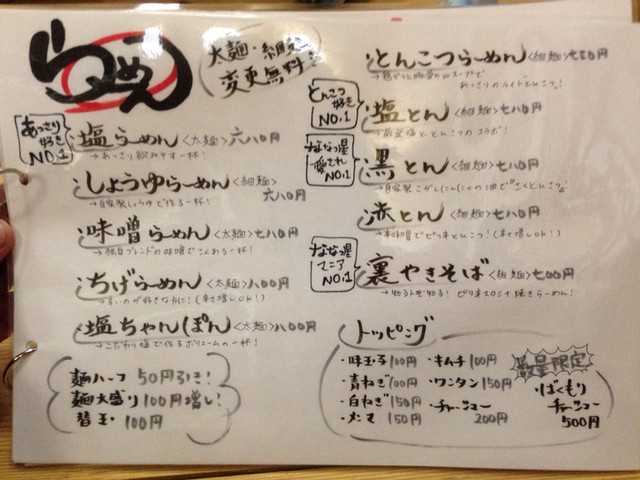 らーめん
太麺・細麺
変更無料!
あっさり
好き
NO.1
塩らーめん〈太麺〉六八〇円
→あっさり飲みやす一杯!
しょうゆらーめん〈細麺〉
六八〇円
→自家製しょうゆで作る一杯!
味噌らーめん〈太麺〉七八〇円
→独自ブレンドの味噌でこんわる一杯!
ちげらーめん〈太麺〉八〇〇円
→辛いのが好きな方に!(辛増しOK!)
塩ちゃんぽん〈太麺〉八〇〇円
→こだわり塩で作るボリュームの一杯!
麺ハーフ 50円引き!
麺大盛り100円増し!
替玉 100円
とんこつらーめん〈細麺〉七五〇円
あっさりのライトとんこつ!
とんこつ
好き
NO.1
塩とん〈細麺〉七八〇円
ととんこつのコラボ!
ななつ星
愛され
NO.1
黒とん〈細麺〉七八〇円
→自家製こがしにんにくの油で
赤とん〈細麺〉七八〇円
→辛味噌でピリ辛とんこつ!(辛増しOK!)
ななつ星
マニア
NO.1
裏やきそば〈細麺〉七〇〇円
→知る人ぞ知る!ピリ辛スタミナ焼きらーめん!
トッピング
・味玉子100円
・青ねぎ100円
・白ねぎ150円
・メンマ 150円
・キムチ 100円
・ワンタン 150円
・チャーシュー
200円
数量限定
・ばくもり
チャーシュー
500円